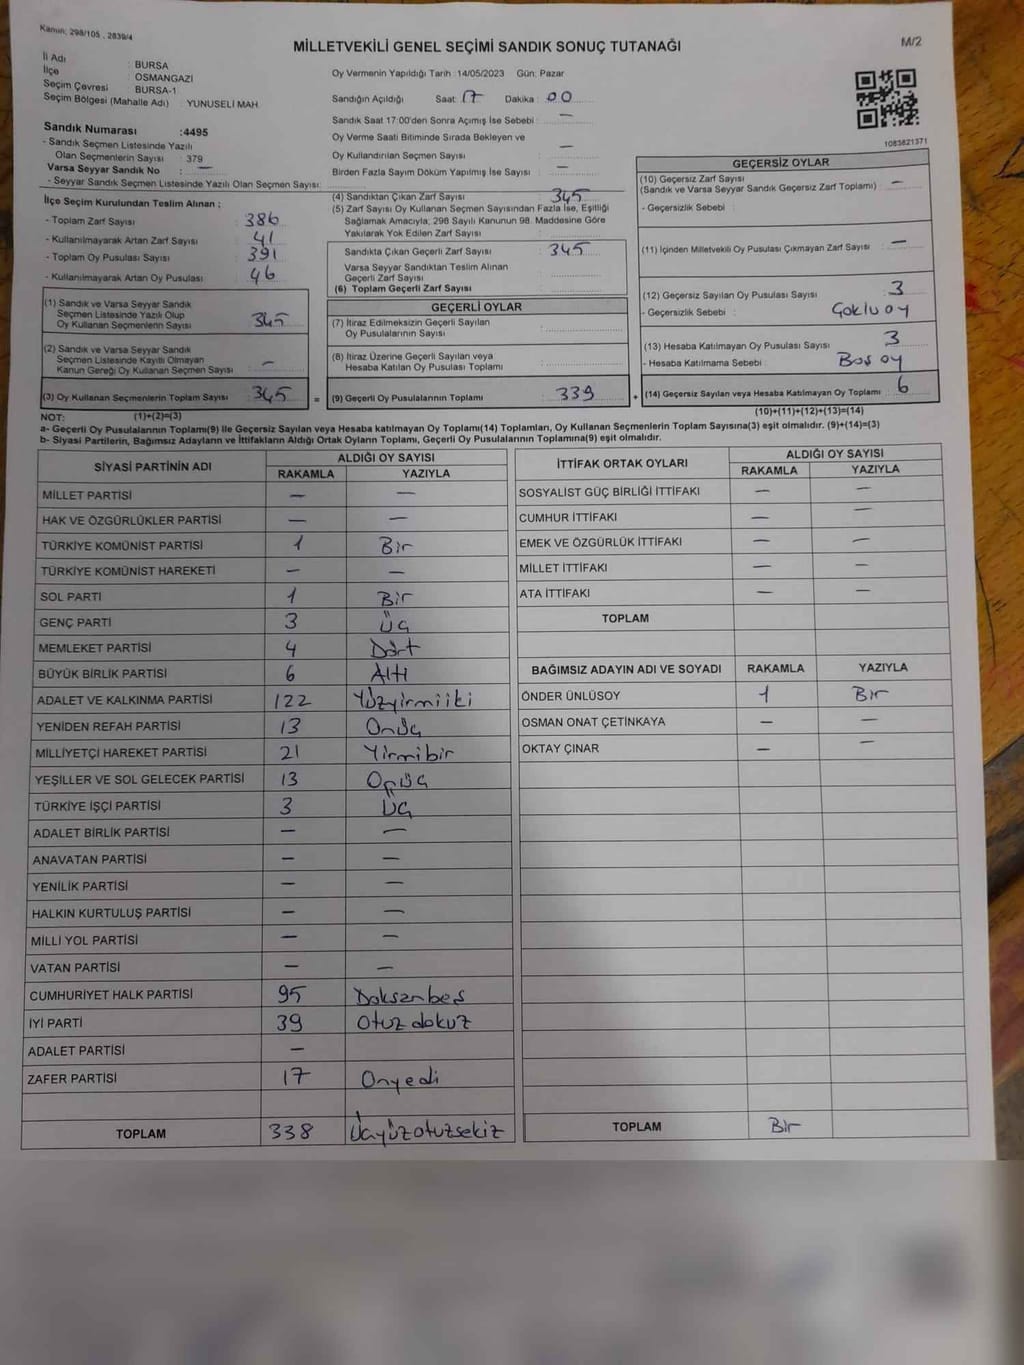 Kanun: 298/105 , 2839/4
MİLLETVEKİLİ GENEL SEÇİMİ SANDIK SONUÇ TUTANAĞI
M/2
İl Adı : BURSA
İlçe : OSMANGAZİ
Seçim Çevresi : BURSA-1
Seçim Bölgesi (Mahalle Adı) : YUNUSELİ MAH.
Sandık Numarası :4495
- Sandık Seçmen Listesinde Yazılı
Olan Seçmenlerin Sayısı : 379
Varsa Seyyar Sandık No : —
- Seyyar Sandık Seçmen Listesinde Yazılı Olan Seçmen Sayısı:
Oy Vermenin Yapıldığı Tarih :14/05/2023 Gün: Pazar
Sandığın Açıldığı Saat: 17 Dakika : 00
Sandık Saat 17:00'den Sonra Açımış İse Sebebi : —
Oy Verme Saati Bitiminde Sırada Bekleyen ve
Oy Kullandırılan Seçmen Sayısı : —
Birden Fazla Sayım Döküm Yapılmış İse Sayısı : —
1083821371
İlçe Seçim Kurulundan Teslim Alınan ;
- Toplam Zarf Sayısı : 386
- Kullanılmayarak Artan Zarf Sayısı : 41
- Toplam Oy Pusulası Sayısı : 391
- Kullanılmayarak Artan Oy Pusulası : 46
(1) Sandık ve Varsa Seyyar Sandık
Seçmen Listesinde Yazılı Olup
Oy Kullanan Seçmenlerin Sayısı : 345
(2) Sandık ve Varsa Seyyar Sandık
Seçmen Listesinde Kayıtlı Olmayan
Kanun Gereği Oy Kullanan Seçmen Sayısı : —
(3) Oy Kullanan Seçmenlerin Toplam Sayısı : 345 =
(4) Sandıktan Çıkan Zarf Sayısı : 345
(5) Zarf Sayısı Oy Kullanan Seçmen Sayısından Fazla İse, Eşitliği
Sağlamak Amacıyla; 298 Sayılı Kanunun 98. Maddesine Göre
Yakılarak Yok Edilen Zarf Sayısı :
Sandıkta Çıkan Geçerli Zarf Sayısı : 345
Varsa Seyyar Sandıktan Teslim Alınan
Geçerli Zarf Sayısı :
(6) Toplam Geçerli Zarf Sayısı :
GEÇERLİ OYLAR
(7) İtiraz Edilmeksizin Geçerli Sayılan
Oy Pusulalarının Sayısı :
(8) İtiraz Üzerine Geçerli Sayılan veya
Hesaba Katılan Oy Pusulaları Toplamı :
(9) Geçerli Oy Pusulalarının Toplamı : 339 +
GEÇERSİZ OYLAR
(10) Geçersiz Zarf Sayısı
(Sandık ve Varsa Seyyar Sandık Geçersiz Zarf Toplamı) : —
- Geçersizlik Sebebi :
(11) İçinden Milletvekili Oy Pusulası Çıkmayan Zarf Sayısı : —
(12) Geçersiz Sayılan Oy Pusulası Sayısı : 3
- Geçersizlik Sebebi : Çoklu oy
(13) Hesaba Katılmayan Oy Pusulası Sayısı : 3
- Hesaba Katılmama Sebebi : Boş oy
(14) Geçersiz Sayılan veya Hesaba Katılmayan Oy Toplamı : 6
NOT: (1)+(2)=(3) (10)+(11)+(12)+(13)=(14)
a- Geçerli Oy Pusulalarının Toplamı(9) ile Geçersiz Sayılan veya Hesaba katılmayan Oy Toplamı(14) Toplamları, Oy Kullanan Seçmenlerin Toplam Sayısına(3) eşit olmalıdır. (9)+(14)=(3)
b- Siyasi Partilerin, Bağımsız Adayların ve İttifakların Aldığı Ortak Oyların Toplamı, Geçerli Oy Pusulalarının Toplamına(9) eşit olmalıdır.
SİYASİ PARTİNİN ADI ALDIĞI OY SAYISI
RAKAMLA YAZIYLA
MİLLET PARTİSİ — —
HAK VE ÖZGÜRLÜKLER PARTİSİ — —
TÜRKİYE KOMÜNİST PARTİSİ 1 Bir
TÜRKİYE KOMÜNİST HAREKETİ — —
SOL PARTİ 1 Bir
GENÇ PARTİ 3 Üç
MEMLEKET PARTİSİ 4 Dört
BÜYÜK BİRLİK PARTİSİ 6 Altı
ADALET VE KALKINMA PARTİSİ 122 Yüzyirmiiki
YENİDEN REFAH PARTİSİ 13 Onüç
MİLLİYETÇİ HAREKET PARTİSİ 21 Yirmibir
YEŞİLLER VE SOL GELECEK PARTİSİ 13 Onüç
TÜRKİYE İŞÇİ PARTİSİ 3 Üç
ADALET BİRLİK PARTİSİ — —
ANAVATAN PARTİSİ — —
YENİLİK PARTİSİ — —
HALKIN KURTULUŞ PARTİSİ — —
MİLLİ YOL PARTİSİ — —
VATAN PARTİSİ — —
CUMHURİYET HALK PARTİSİ 95 Doksanbeş
İYİ PARTİ 39 Otuzdokuz
ADALET PARTİSİ —
ZAFER PARTİSİ 17 Onyedi
TOPLAM 338 Üçyüzotuzsekiz
İTTİFAK ORTAK OYLARI ALDIĞI OY SAYISI
RAKAMLA YAZIYLA
SOSYALİST GÜÇ BİRLİĞİ İTTİFAKI — —
CUMHUR İTTİFAKI — —
EMEK VE ÖZGÜRLÜK İTTİFAKI — —
MİLLET İTTİFAKI — —
ATA İTTİFAKI — —
TOPLAM
BAĞIMSIZ ADAYIN ADI VE SOYADI RAKAMLA YAZIYLA
ÖNDER ÜNLÜSOY 1 Bir
OSMAN ONAT ÇETİNKAYA — —
OKTAY ÇINAR — —
TOPLAM Bir